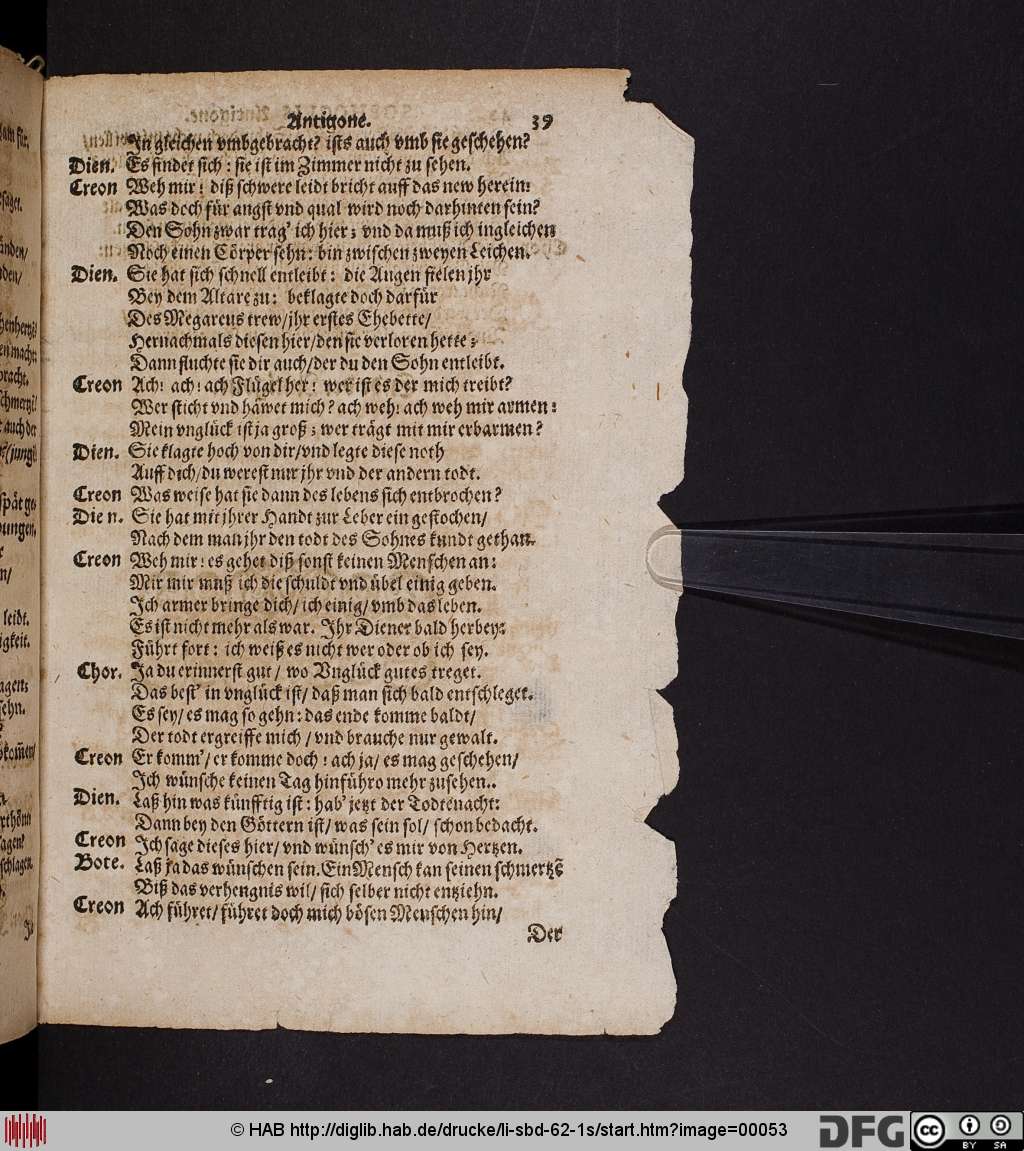 Antigone. 39
In gleichen vmbgebracht? ists auch vmb sie geschehen?
Dien. Es findet sich: sie ist im Zimmer nicht zu sehen.
Creon Weh mir! diß schwere leidt bricht auff das new herein:
Was doch für angst vnd qual wird noch darhinten sein?
Den Sohn zwar trag' ich hier; vnd da muß ich ingleichen
Noch einen Cörper sehn: bin zwischen zweyen Leichen.
Dien. Sie hat sich schnell entleibt: die Augen fielen jhr
Bey dem Altare zu: beklagte doch darfür
Des Megareus trew/ jhr erstes Ehebette/
Hernachmals diesen hier/ den sie verloren hette;
Dann fluchte sie dir auch/ der du den Sohn entleibt.
Creon Ach! ach! ach Flügel her! wer ist es der mich treibt?
Wer sticht vnd häwet mich? ach weh! ach weh mir armen!
Mein vnglück ist ja groß; wer trägt mit mir erbarmen?
Dien. Sie klagte hoch von dir/ vnd legte diese noth
Auff dich/ du werest nur jhr vnd der andern todt.
Creon Was weise hat sie dann des lebens sich entbrochen?
Dien. Sie hat mit jhrer Handt zur Leber ein gestochen/
Nach dem man jhr den todt des Sohnes kundt gethan.
Creon Weh mir! es gehet diß sonst keinen Menschen an:
Mir mir muß ich die schuldt vnd übel einig geben.
Ich armer bringe dich/ ich einig/ vmb das leben.
Es ist nicht mehr als war. Ihr Diener bald herbey:
Führt fort: ich weiß es nicht wer oder ob ich sey.
Chor. Ja du erinnerst gut/ wo Vnglück gutes treget.
Das best' in vnglück ist/ daß man sich bald entschleget.
Es sey/ es mag so gehn: das ende komme baldt/
Der todt ergreiffe mich/ vnd brauche nur gewalt.
Creon Er komm'/ er komme doch! ach ja/ es mag geschehen/
Ich wünsche keinen Tag hinführo mehr zusehen..
Dien. Laß hin was künfftig ist: hab' jetzt der Todten acht:
Dann bey den Göttern ist/ was sein sol/ schon bedacht.
Creon Ich sage dieses hier/ vnd wünsch' es mir von Hertzen.
Bote. Laß ja das wünschen sein. Ein Mensch kan seinen schmertzē
Biß das verhengnis wil/ sich selber nicht entziehn.
Creon Ach führet/ führet doch mich bösen Menschen hin/
Der
© HAB http://diglib.hab.de/drucke/li-sbd-62-1s/start.htm?image=00053
DFG
cc
BY SA